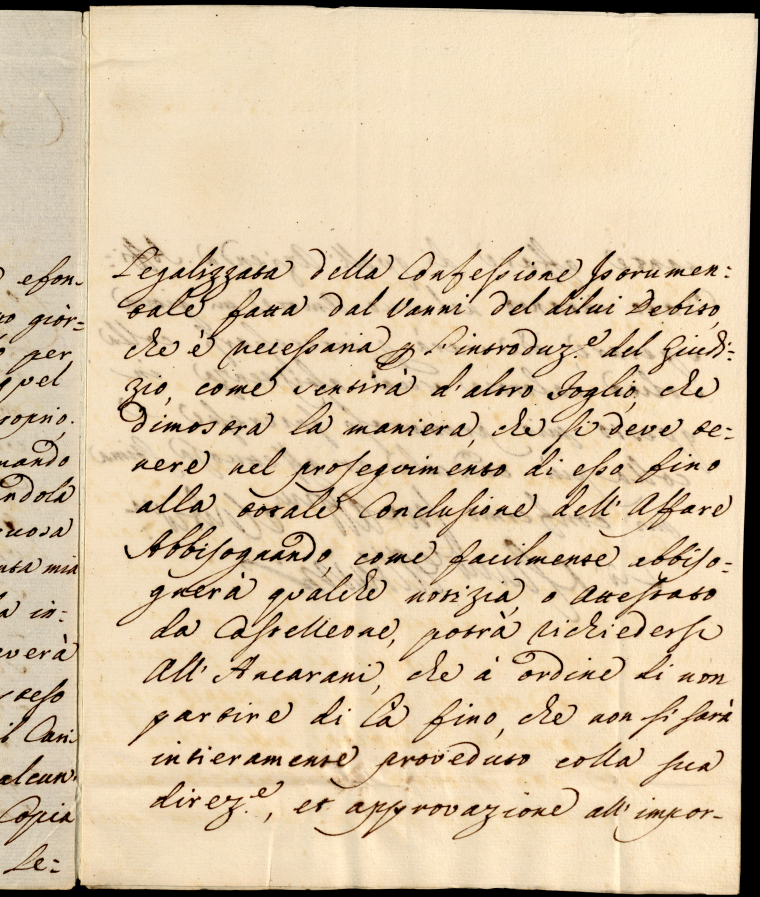 efon-
no gior-
per
quel
proprio.
mando
ndola
nta mia
a in:
everà
teso
il Can:
alcun
Copia
Le:
Legalizzata della Confessione Istrumen:
tale fatta dal Vanni del dilui Debito,
che è necessaria p l'introduz.e del Giudi:
zio, come sentirà d'altro Foglio, che
dimostra la maniera, che si deve te:
nere nel proseguimento di esso fino
alla totale Conclusione dell'Affare
Abbisognando, come facilmente abbiso:
gnerà qualche notizia, o Attestato
da Castelleone, potrà richiedersi
All'Ancarani, che à ordine di non
partire di Là fino, che non si sarà
intieramente proveduto colla sua
direz.e, et approvazione all'impor-